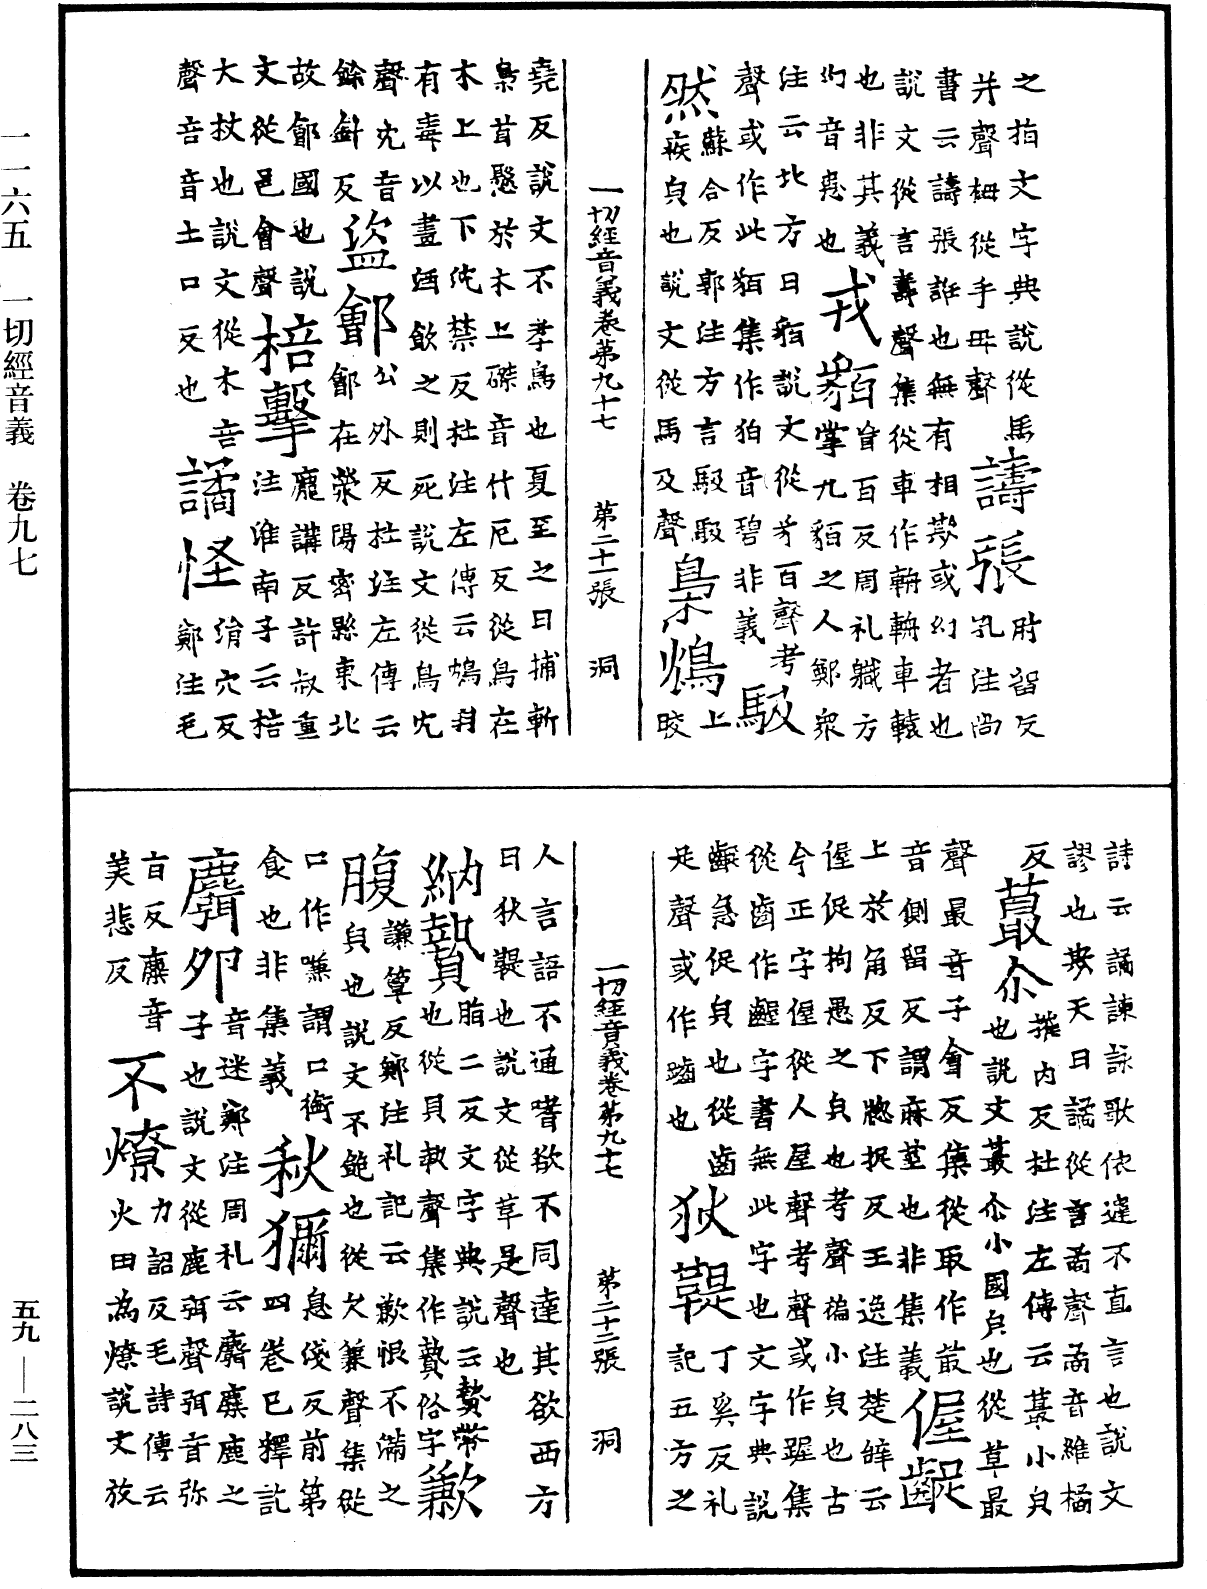 之指文字典說從馬譸張肘留反
并聲栂從手毋聲　孔注尚
書云譸張誑也無有相欺或幻者也
說文從言壽聲集從車作輈輈車轅
也非其義戎貊音百反周礼職方
灼音惠也　掌九貊之人鄭衆
注云北方曰貊說文從豸百聲考
聲或作此貊集作狛音碧非義　馺
然蘇合反郭注方言馺馺　上
疾皃也說文從馬及聲梟鴆晈
一切經音義卷第九十七　第二十一張　洞
堯反說文不孝鳥也夏至之日捕斬
梟首懸於木上磔音竹厄反從鳥在
木上也下沈禁反杜注左傳云鴆羽
有毒以畫酒飲之則死說文從鳥冘
聲冘音　公外反杜注左傳云
餘針反盜鄶鄶在滎陽密縣東北
故鄶國也說　龐講反許叔重
文從邑會聲棓擊注淮南子云棓
大杖也說文從木咅　涓穴反
聲咅音土口反也譎怪鄭注毛
詩云譎諫詠歌依違不直言也說文
謬也矣天曰譎從言矞聲矞音維橘
反蕞尒摧內反杜注左傳云蕞小皃
也說文蕞尒小國皃也從草最
聲最音子會反集從取作菆
音側留反謂麻莖也非集義偓齪
上於角反下𢥠捉反王逸注楚辭云
偓促拘愚之皃也考聲褊小皃也古
今正字偓從人屋聲考聲或作踀集
從齒作齷字書無此字也文字典說
齱急促皃也從齒　丁奚反礼
足聲或作䠱也狄鞮記五方之
一切經音義卷第九十七　第二十二張　洞
人言語不通嗜欲不同達其欲西方
曰狄鞮也說文從革是聲也
納贄脂二反文字典說云贄幣
也從貝執聲集作贄俗字歉
腹謙簟反鄭注礼記云歉恨不滿之
皃也說文不飽也從欠兼聲集從
口作嗛謂口銜　息淺反前第
食也非集義秋獮四卷已釋訖
麛卵音迷鄭注周礼云麛麋鹿之
子也說文從鹿弭聲弭音弥
盲反麋音　力詔反毛詩傳云
美悲反　不燎火田為燎說文放
一一六五　一切經音義　卷九七
五九—二八三